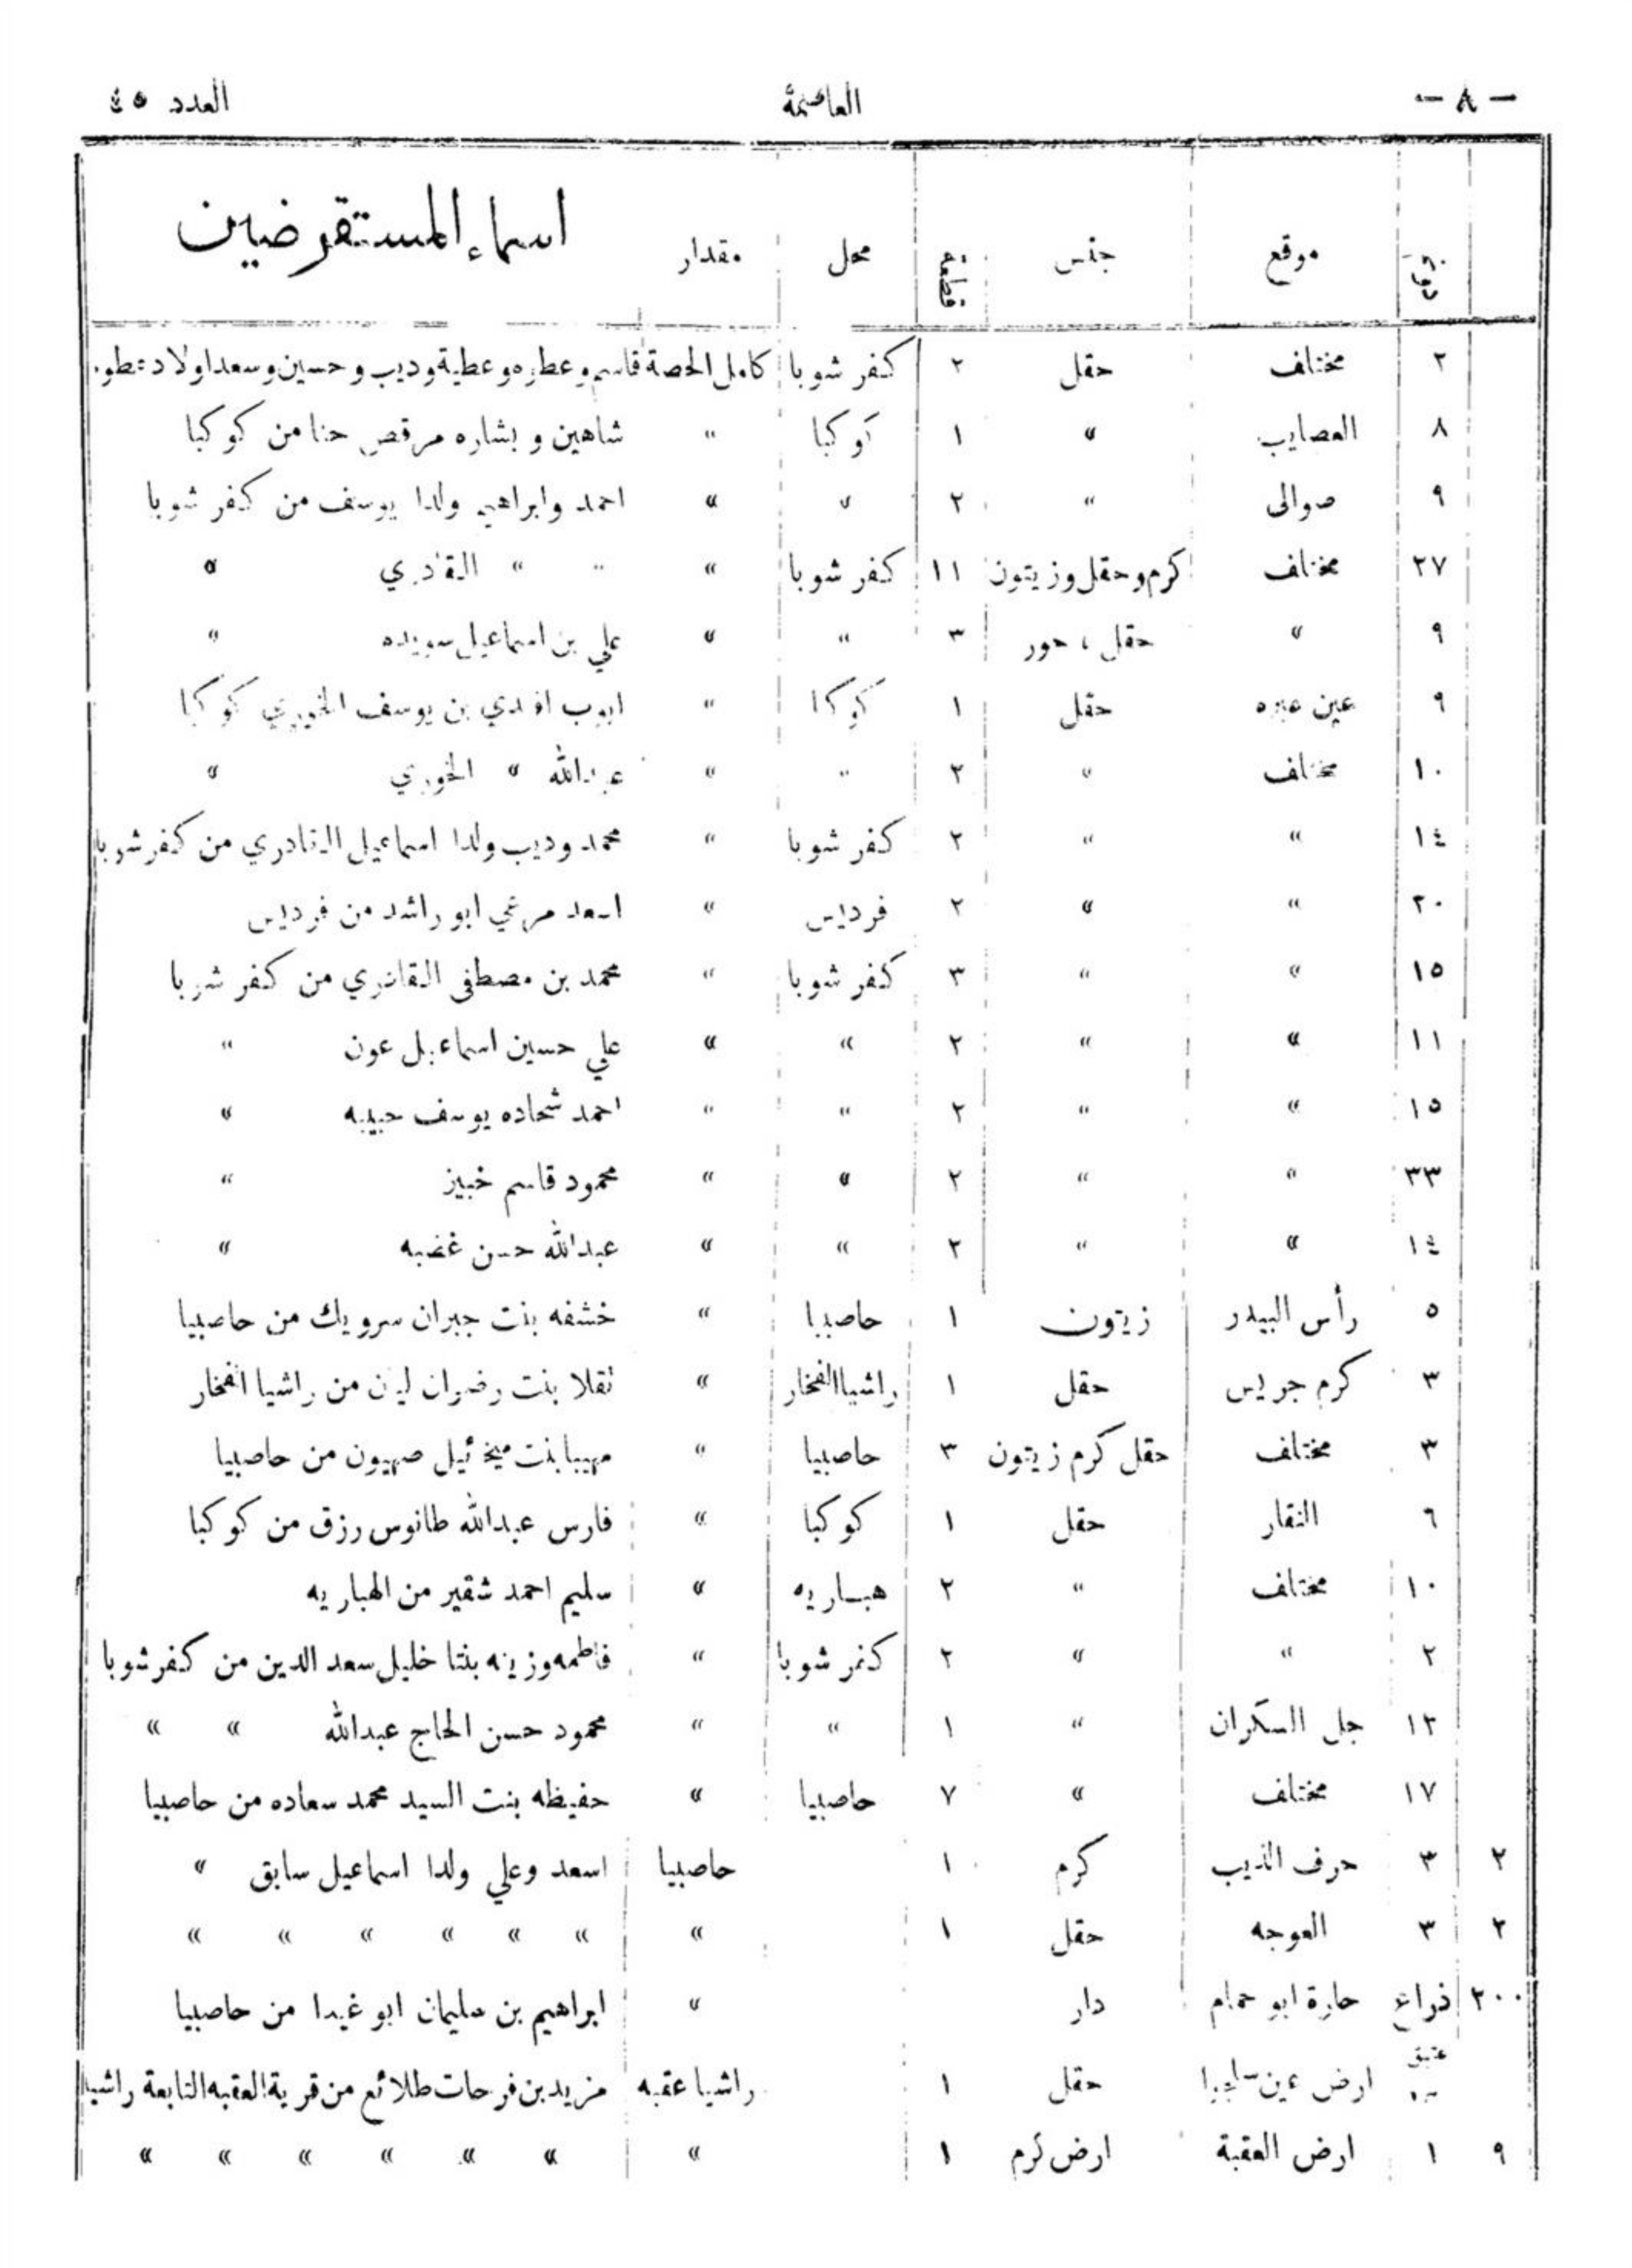 — ٨ — العاصمة العدد ٤٥
موقع جنس قطعة محل مقدار اسماء المستقرضين
٢ مختلف حقل ٢ كفر شوبا كامل الحصة قاسم وعطره وعطية وديب وحسين وسعد اولاد عطوه
٨ العصايب » ١ كوكبا » شاهين وبشاره مرقص حنا من كوكبا
٩ صوالى » ٢ » » احمد وابراهيم ولدا يوسف من كفر شوبا
٢٧ مختلف كرم وحقل وزيتون ١١ كفر شوبا » » » القادري »
٩ » حقل ، حور ٣ » » علي بن اسماعيل سويده »
٩ عين حقل ١ كوكبا » ايوب افندي بن يوسف الخوري كوكبا
١٠ مختلف » ٢ » » عبدالله » الخوري »
١٤ » » ٢ كفر شوبا » محمد وديب ولدا اسماعيل القادري من كفر شوبا
٢٠ » » ٢ فرديس » اسعد مرعي ابو راشد من فرديس
١٥ » » ٣ كفر شوبا » محمد بن مصطفى القادري من كفر شوبا
١١ » » ٢ » » علي حسين اسماعيل عون »
١٥ » » ٢ » » احمد شحاده يوسف حبيبه »
٣٣ » » ٢ » » محمود قاسم خبيز »
١٤ » » ٢ » » عبدالله حسن غضبه »
٥ رأس البيدر زيتون ١ حاصبيا » خشفه بنت جبران سرويك من حاصبيا
٣ كرم جريس حقل ١ راشيا الفخار » تقلا بنت رضوان ليان من راشيا الفخار
٣ مختلف حقل كرم زيتون ٣ حاصبيا » مهيبا بنت ميخائيل صهيون من حاصبيا
٦ النقار حقل ١ كوكبا » فارس عبدالله طانوس رزق من كوكبا
١٠ مختلف » ٢ هباريه » سليم احمد شقير من الهباريه
٢ » » ٢ كفر شوبا » فاطمه وزينه بنتا خليل سعد الدين من كفر شوبا
١٢ جل السكران » ١ » » محمود حسن الحاج عبدالله » »
١٧ مختلف » ٧ حاصبيا » حفيظه بنت السيد محمد سعاده من حاصبيا
٢ ٣ حرف الذيب كرم ١ حاصبيا اسعد وعلي ولدا اسماعيل سابق »
٢ ٣ العوجه حقل ١ » » » » » » »
٢٠٠ ذراع حارة ابو حمام دار » ابراهيم بن سليمان ابو غيدا من حاصبيا
عتيق ارض عين حقل ١ راشيا عقبه مزيد بن فرحات طلائع من قرية العقبه التابعة راشيا
٩ ١ ارض العقبة ارض كرم ١ » » » » » » »